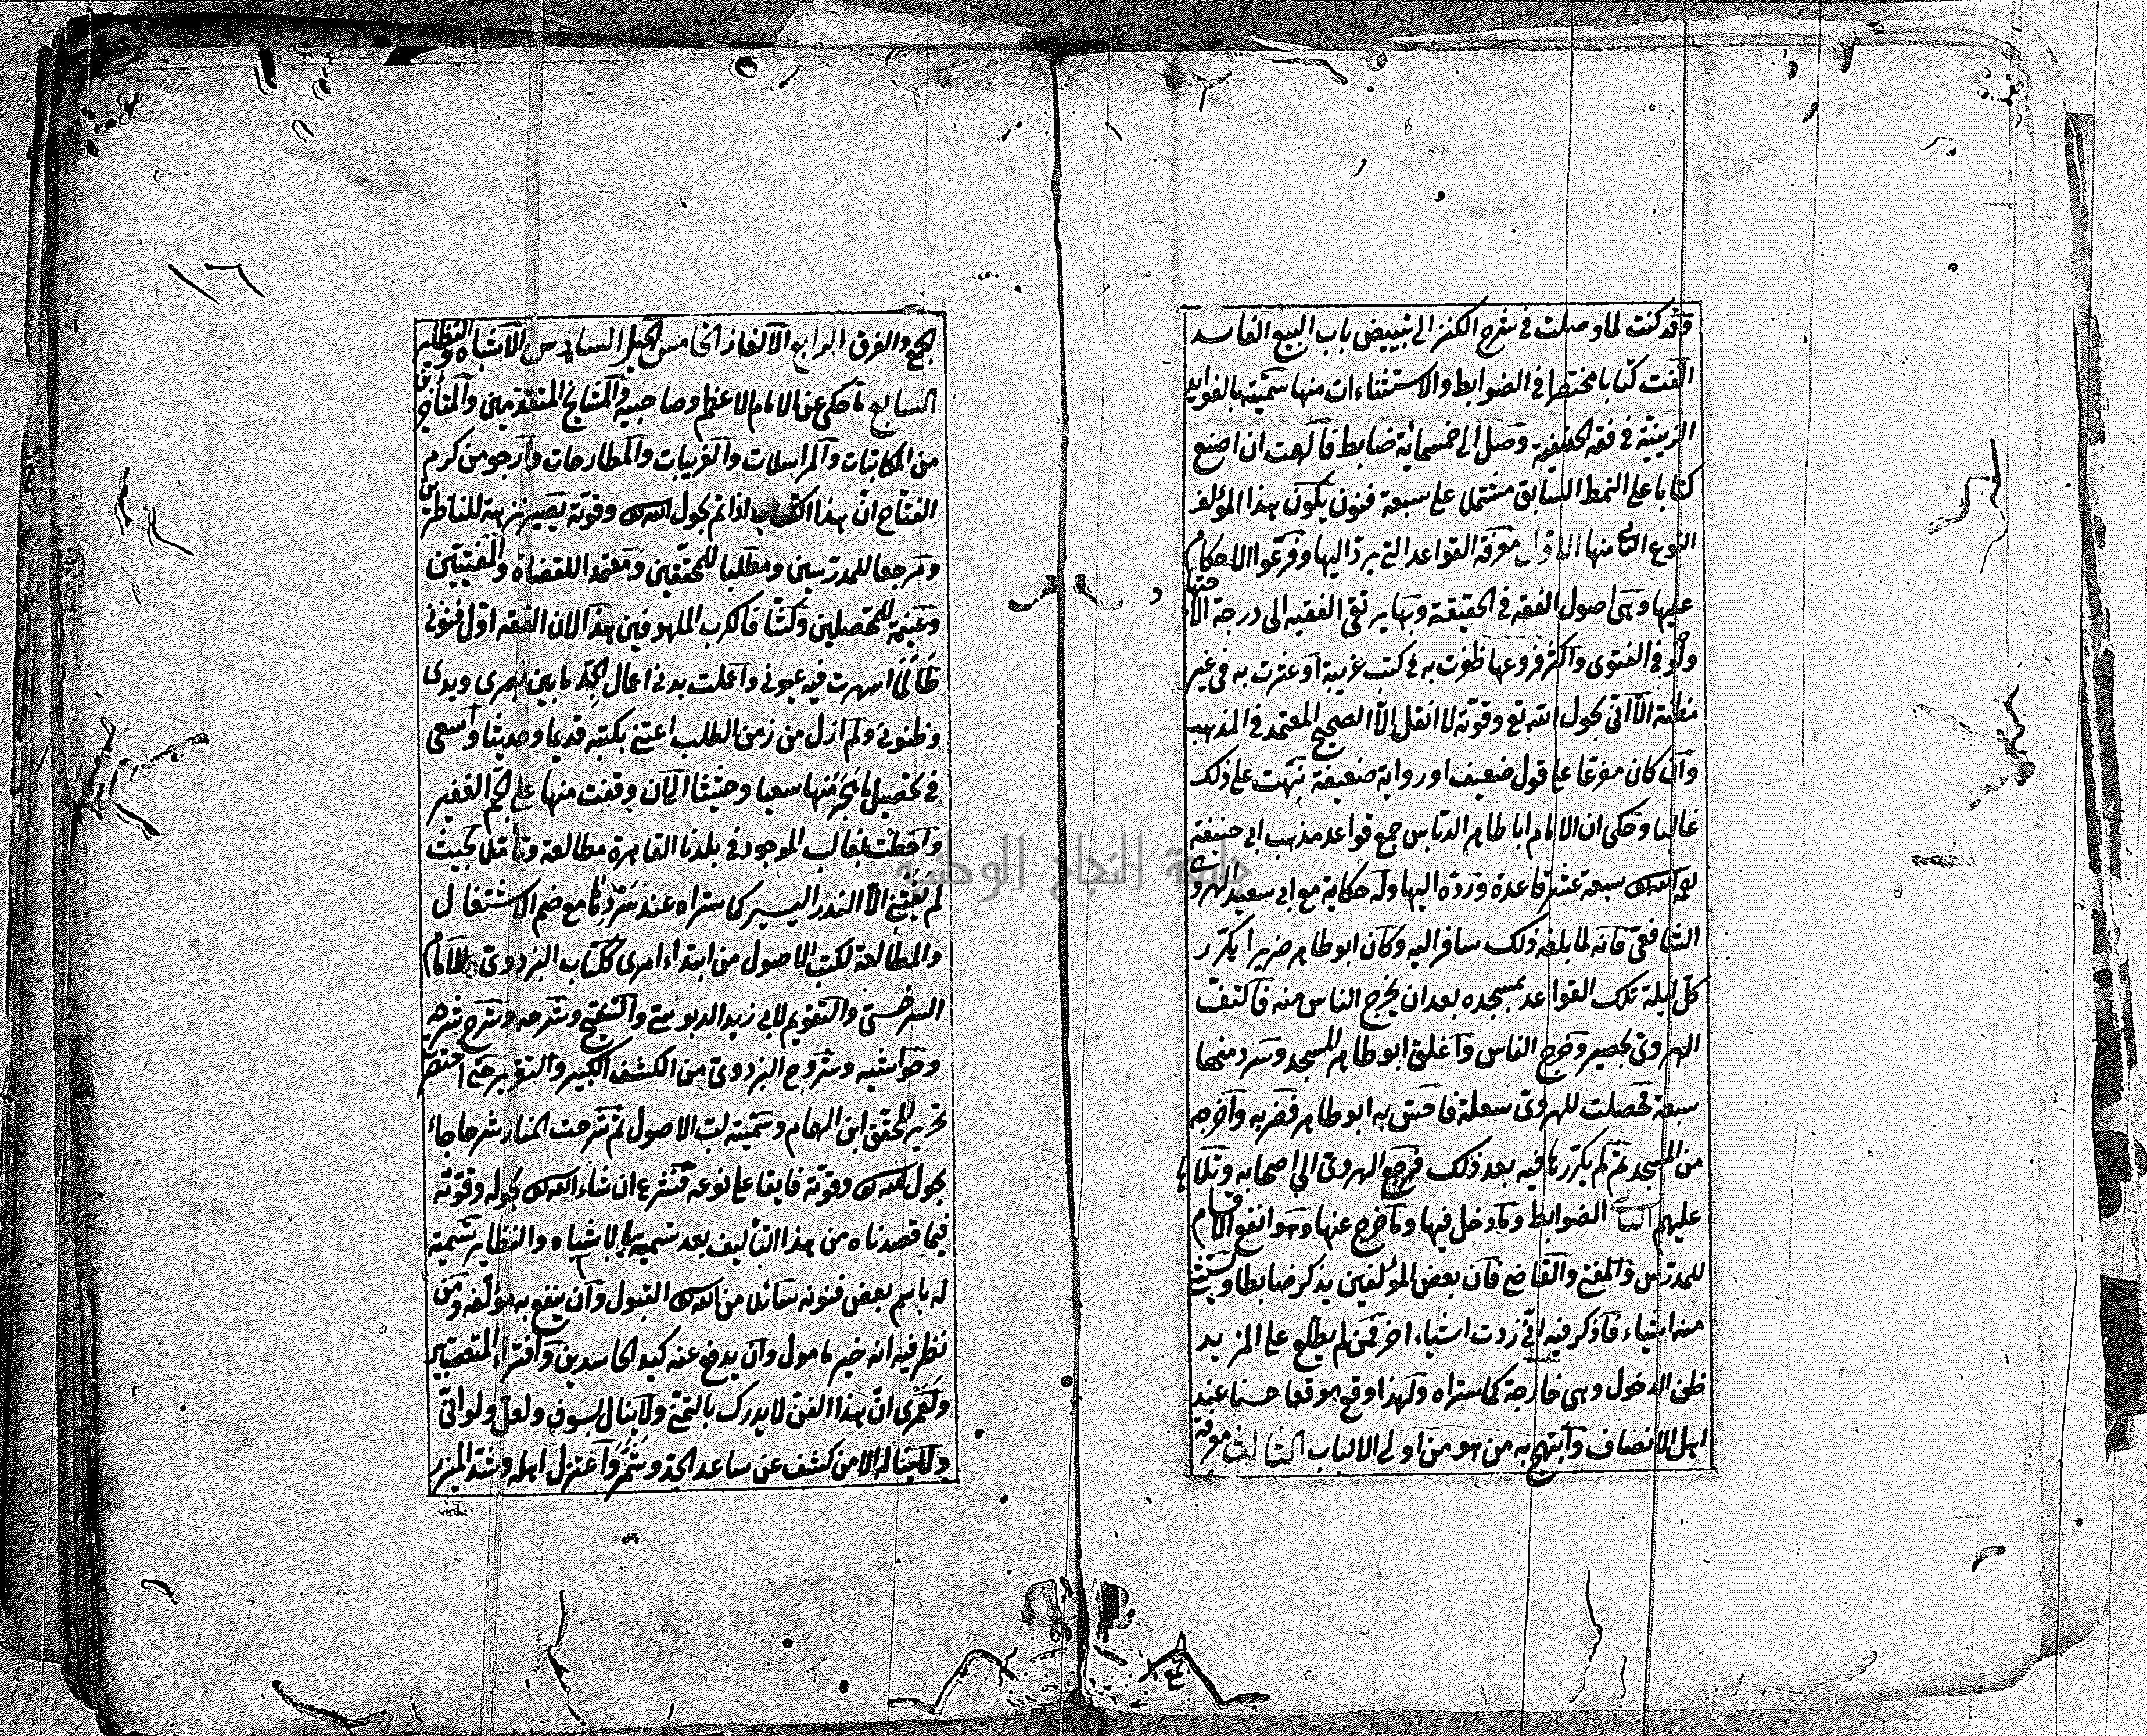 وقد كنت لما وصلت في شرح الكنز الى تبييض باب البيع الفاسد
الفت كتابا مختصرا في الضوابط والاستثناءات منها سميتها بالفوايد
الزينية في فقه الحنفية وصل الى خمسمائة ضابط فالهمت ان اصنع
كتابا على النمط السابق مشتملا على سبعة فنون يكون هذا المؤلف
النوع الثانى منها الاول معرفة القواعد التى يرد اليها وفرعوا الاحكام
عليها وهى اصول الفقه في الحقيقة وبها يرتقى الفقيه الى درجة الاجتهاد
ولو في الفتوى واكثر فروعها ظفرت به في كتب غريبة او عثرت به في غير
مظنته الا انى بحول الله تع وقوته لا انقل الا الصحيح المعتمد في المذهب
وان كان مفرعا على قول ضعيف او رواية ضعيفة نبهت على ذلك
غالبا وحكى ان الامام ابا طاهر الدباس جمع قواعد مذهب ابى حنيفة
سبعة عشر قاعدة ورده اليها وله حكاية مع ابى سعيد الهروى
الشافعى فانه لما بلغه ذلك سافر اليه وكان ابو طاهر ضريرا يكرر
كل ليلة تلك القواعد بمسجده بعد ان يخرج الناس منه فالتف
الهروى بحصير وخرج الناس واغلق ابو طاهر المسجد وسرد منها
سبعة فحصلت للهروى سعلة فاحس به ابو طاهر فضربه واخرجه
من المسجد ثم لم يكررها فيه بعد ذلك فرجع الهروى الى اصحابه وتلاها
عليهم الثانى الضوابط وما دخل فيها وما خرج عنها وهو انفع الاقسام
للمدرس والمفتى والقاضى فان بعض المؤلفين يذكر ضابطا ويستثنى
منه اشياء فاذكر فيه انى زدت اشياء اخر فمن لم يطلع على المزيد
ظن الدخول وهى خارجة كما ستراه ولهذا وقع موقعا حسنا عند
اهل الانصاف وابتهج به من هو من اولى الالباب الثالث معرفة
الجمع والفرق الرابع الالغاز الخامس الحيل السادس الاشباه والنظاير
السابع ما حكى عن الامام الاعظم وصاحبيه والمشايخ المتقدمين والمتأخرين
من المكاتبات والمراسلات والغريبات والمطارحات وارجو من كرم
الفتاح ان هذا الكتاب اذا تم بحول الله وقوته يصير نزهة للناظرين
ومرجعا للمدرسين ومطلبا للمحققين ومعتمدا للقضاة والمفتيين
وغنيمة للمحصلين وكشفا لكرب الملهوفين هذا لان الفقه اول فنونى
طالما اسهرت فيه عيونى واعملت بدنى اعمال الجد ما بين بصرى ويدى
وظنونى ولم ازل من زمن الطلب اعتنى بكتبه قديما وحديثا واسعى
في تحصيل ما هجر منها سعيا وحثيثا الى ان وقفت منها على الجم الغفير
واحطت بغالب الموجود في بلدنا القاهرة مطالعة وتأملا بحيث
لم يفتنى الا النذر اليسير كما ستراه عند سردها مع ضم الاشتغال
والمطالعة لكتب الاصول من ابتداء امرى ككتاب البزدوى للامام
السرخسى والتقويم لابى زيد الدبوسى والتنقيح وشرحه وشرح شرحه
وحواشيه وشروح البزدوى من الكشف الكبير والتقرير حتى اختصرت
تحرير المحقق ابن الهمام وسميته لب الاصول ثم شرحت المنار شرحا جاء
بحول الله وقوته فايقا على نوعه فنشرع ان شاء الله بحوله وقوته
فيما قصدناه من هذا التأليف بعد تسميته بالاشباه والنظاير تسمية
له باسم بعض فنونه سائلا من الله القبول وان ينفع به مؤلفه ومن
نظر فيه انه خير مامول وان يدفع عنه كيد الحاسدين وافتراء المتعصبين
ولعمرى ان هذا الفن لا يدرك بالتمنى ولا ينال بسوف ولعل ولو انى
ولا يناله الا من كشف عن ساعد الجد وشمر واعتزل اهله وشد الميزر
١٦
جامعة النجاح الوطنية